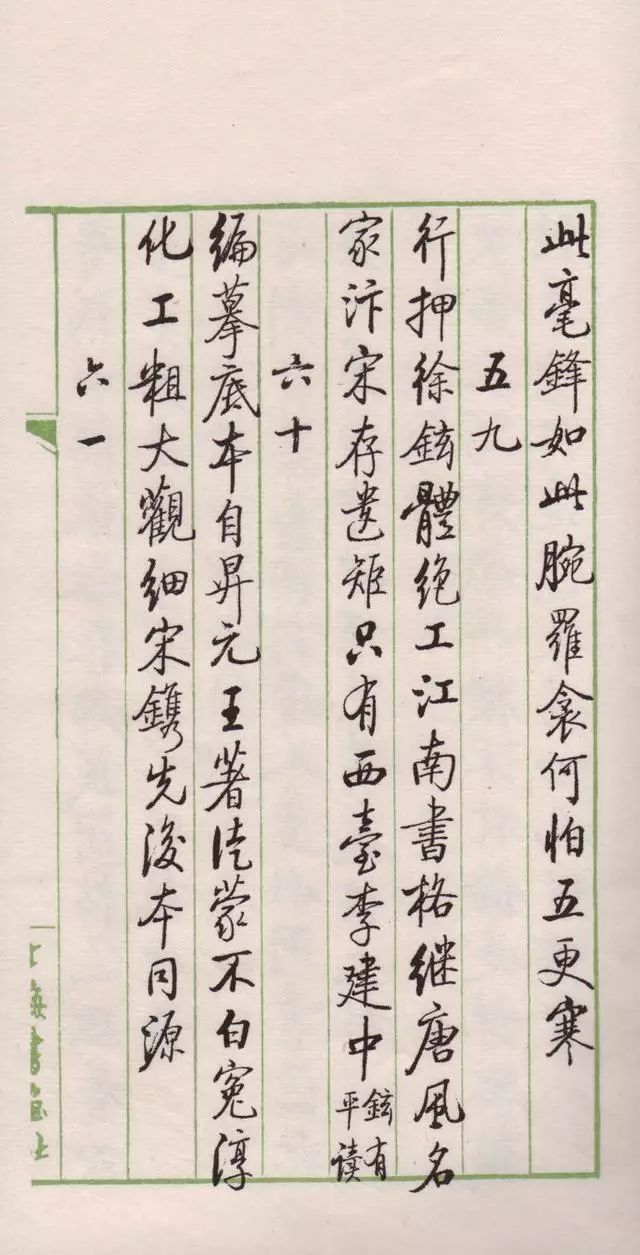 此毫鋒如此腕羅衾何怕五更寒
五九
行押徐鉉體绝工江南書格继唐風名
家汴宋存遗矩只有西臺李建中鉉有平读
六十
編摹底本自昇元王著徒蒙不白冤淳
化工粗大觀细宋鐫先後本同源
六一
上海書畫社